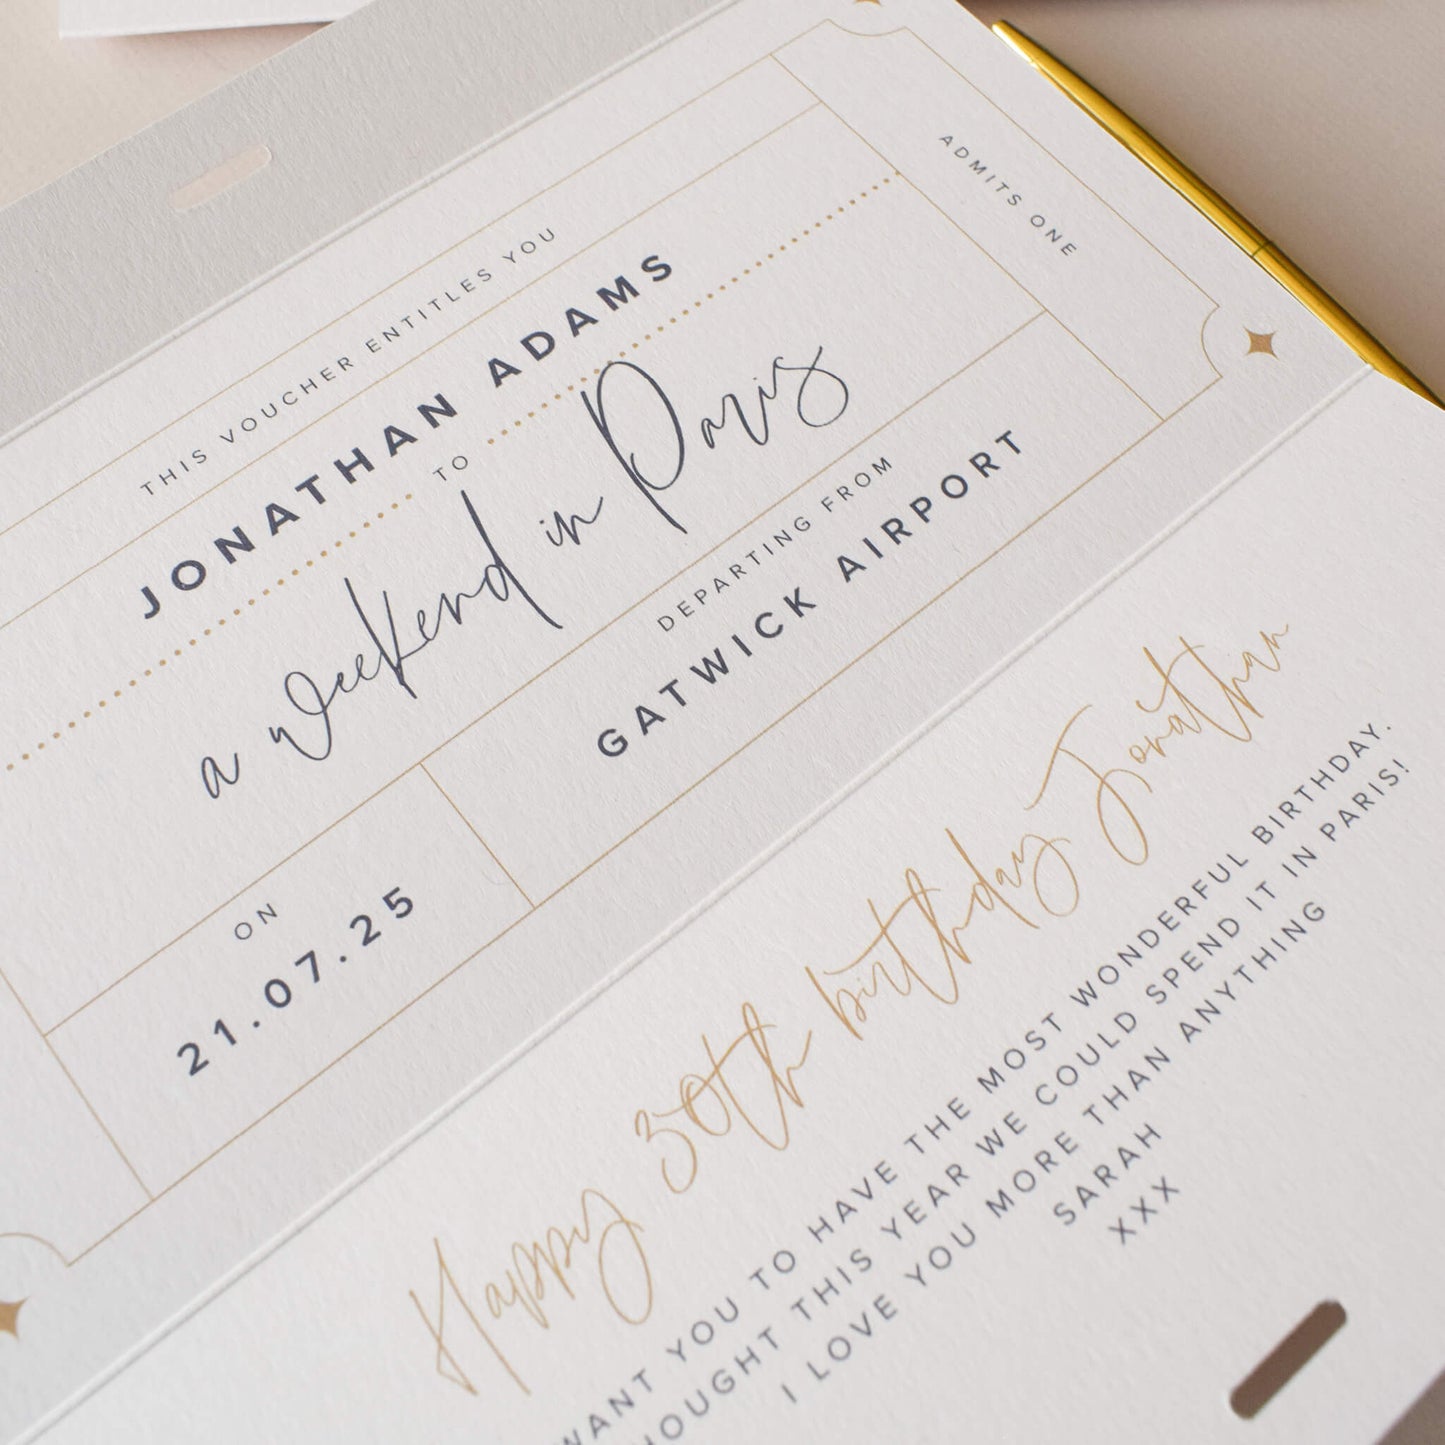 THIS VOUCHER ENTITLES YOU
JONATHAN ADAMS
TO
a weekend in Paris
ADMITS ONE
ON
21.07.25
DEPARTING FROM
GATWICK AIRPORT
Happy 30th birthday Jonathan
WANT YOU TO HAVE THE MOST WONDERFUL BIRTHDAY.
HOUGHT THIS YEAR WE COULD SPEND IT IN PARIS!
I LOVE YOU MORE THAN ANYTHING
SARAH
XXX